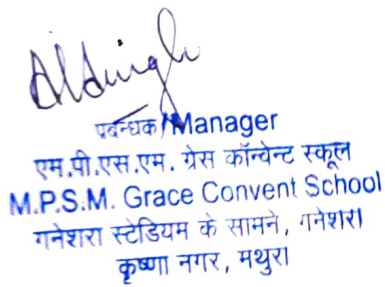 प्रबन्धक/Manager
एम.पी.एस.एम. ग्रेस कॉन्वेन्ट स्कूल
M.P.S.M. Grace Convent School
गनेशरा स्टेडियम के सामने, गनेशरा
कृष्णा नगर, मथुरा